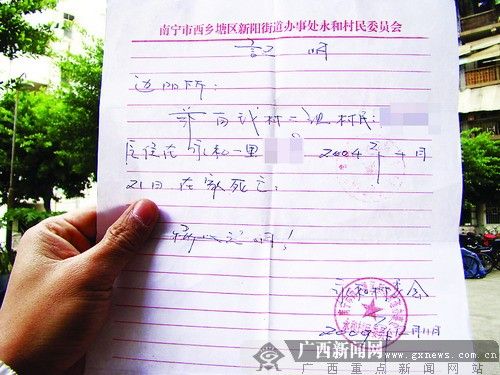 南宁市西乡塘区新阳街道办事处永和村民委员会
证 明
边阳所:
兹有我村二组村民:
居住在永和一里 2004年4月
21日在家死亡.
特此证明!
永和村委会
2009年12月11日
广西新闻网
www.gxnews.com.cn
广西重点新闻网站